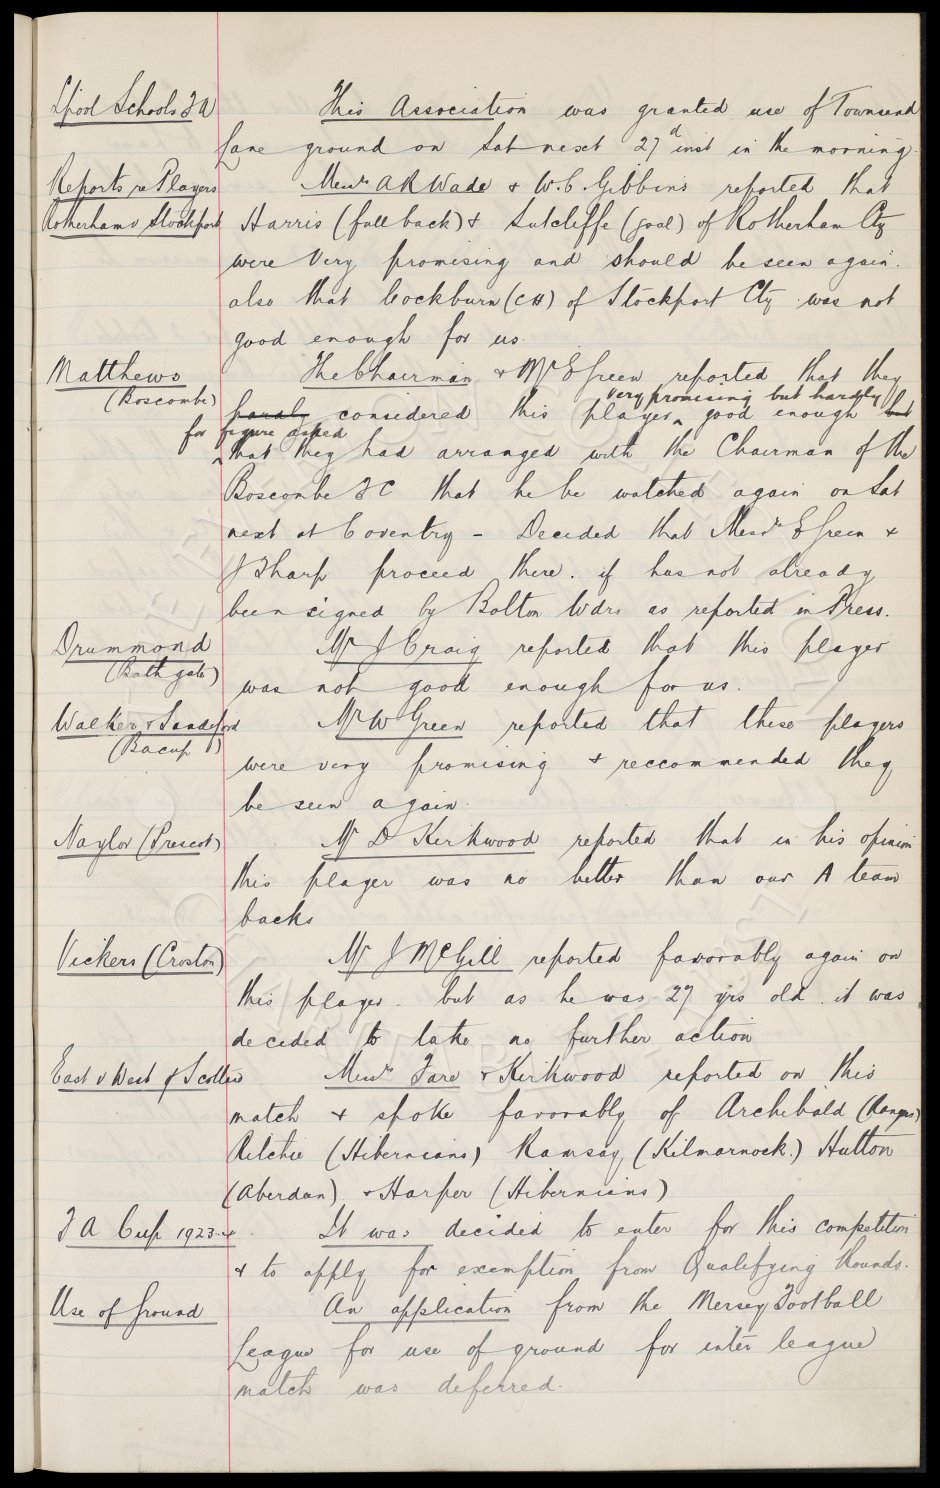 L'pool Schools F A
This Association was granted use of Townsend
Lane ground on Sat next 27d inst in the morning.
Reports re Players
Messrs A R Wade & W. C. Gibbins reported that
Rotherham v Stockport
Harris (full back) & Sutcliffe (goal) of Rotherham Cty
were very promising and should be seen again.
also that Cockburn (CH) of Stockport Cty was not
good enough for us.
Matthews
The Chairman & Mr E Green reported that they
(Boscombe)
very promising but hardly
considered this player good enough but
for figure asked
that they had arranged with the Chairman of the
Boscombe F C that he be watched again on Sat
next at Coventry - Decided that Messrs E Green &
J Sharp proceed there. if has not already
been signed by Bolton Wdrs as reported in Press.
Drummond
Mr J Craig reported that this player
(Bathgate)
was not good enough for us.
Walker & Sandiford
Mr W Green reported that these players
(Bacup)
were very promising & reccommended they
be seen again.
Naylor (Prescot)
Mr D Kirkwood reported that in his opinion
this player was no better than our A team
backs
Vickers (Croston)
Mr J McGill reported favorably again on
this player. but as he was 27 yrs old. it was
decided to take no further action
East v West of Scotland
Messrs Fare & Kirkwood reported on this
match & spoke favorably of Archibald (Rangers)
Ritchie (Hibernians) Ramsay (Kilmarnock.) Hutton
(Aberdeen) & Harper (Hibernians)
F A Cup 1923-4
It was decided to enter for this competition
& to apply for exemption from Qualifying Rounds.
Use of Ground
An application from the Mersey Football
League for use of ground for inter league
match was deferred.